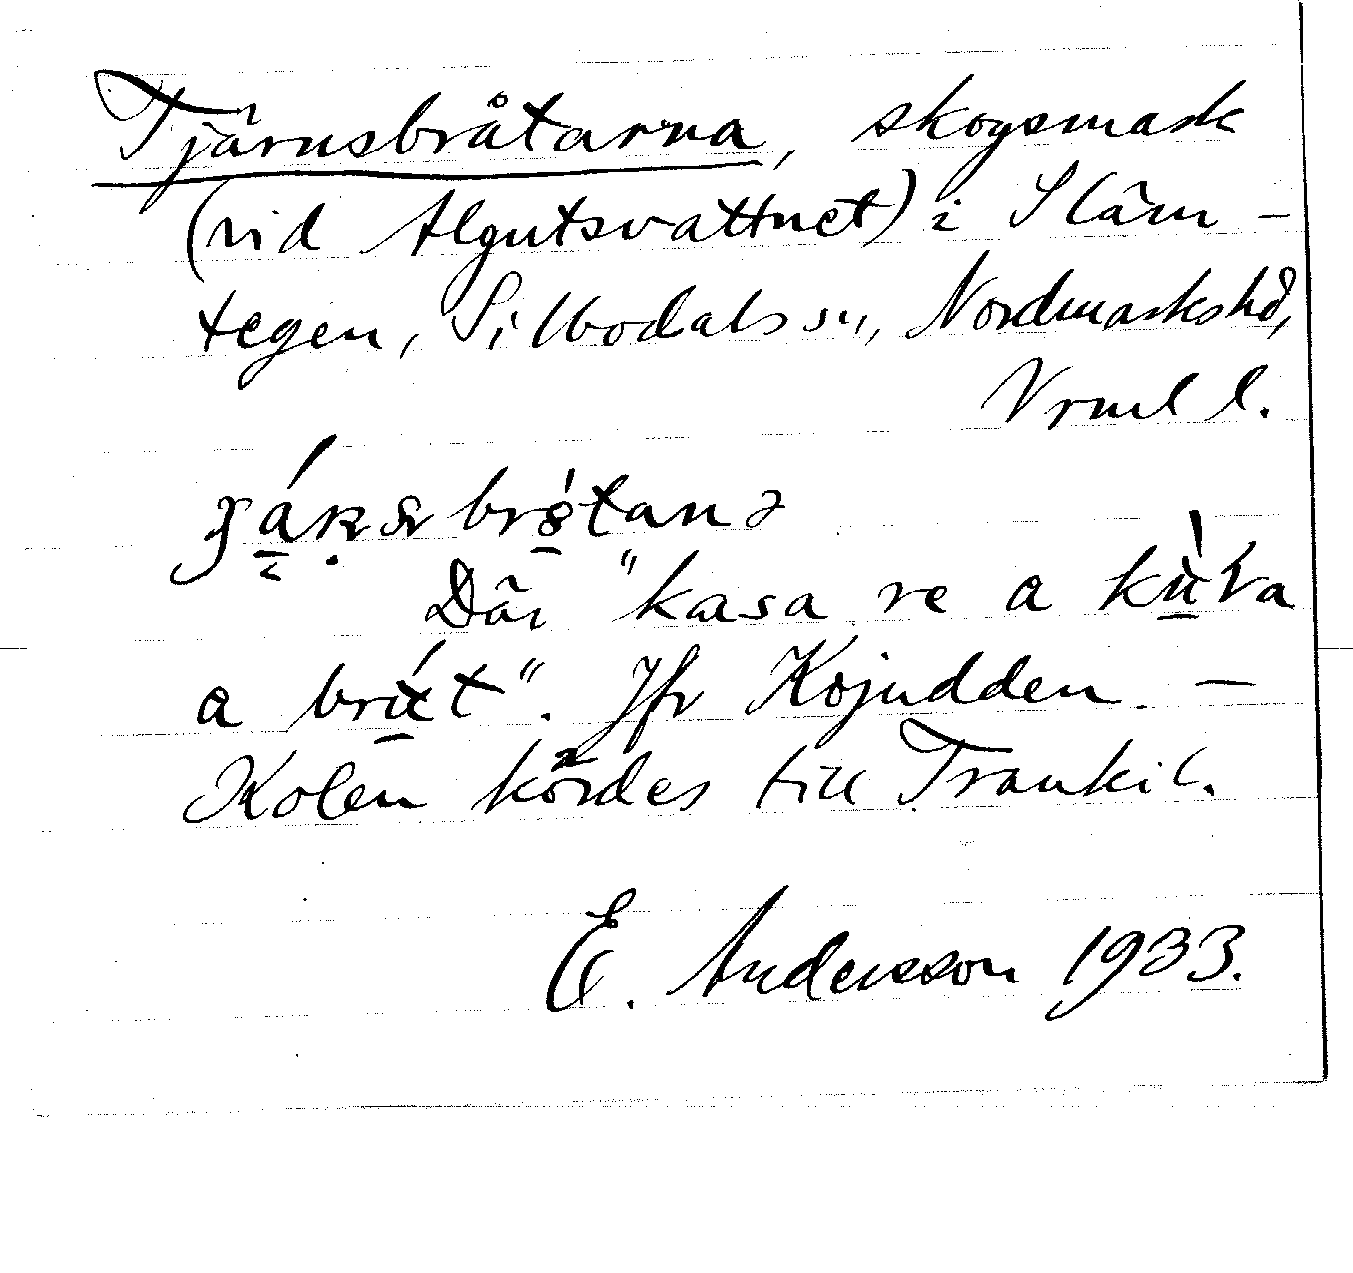 Tjärnsbråtarna, skogsmark
(vid Algutsvattnet) i Släm-
tegen, Silbodals sn, Nordmarks hd,
Vrml l.
Där "kasa re a
a
". Jfr Kojudden. —
Kolen kördes till Trankil.
E. Andersson 1933.